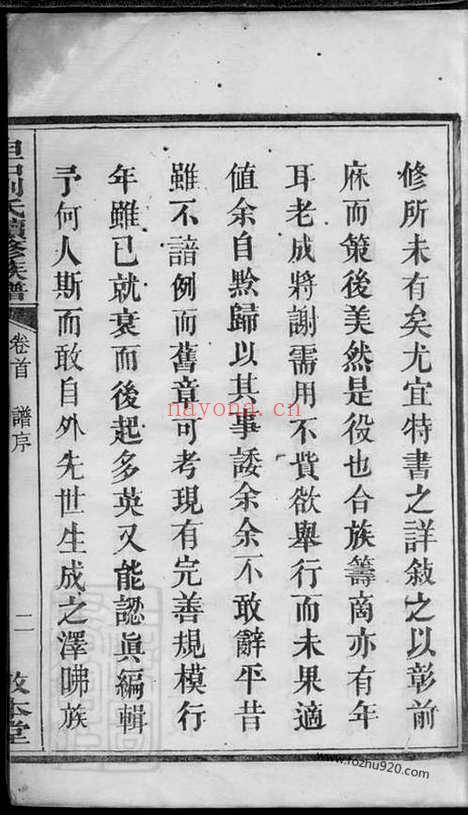 修所未有矣尤宜特書之詳敍之以彰前
庥而策後美然是役也合族籌商亦有年
耳老成將謝需用不貲欲舉行而未果適
值余自黔歸以其事諉余余不敢辭平昔
雖不諳例而舊章可考現有完善規模行
年雖已就衰而後起多英又能認眞編輯
予何人斯而敢自外先世生成之澤咈族
劉氏續修族譜
卷首 譜序
二
敦本堂
nayona.cn
www.fozhu920.com